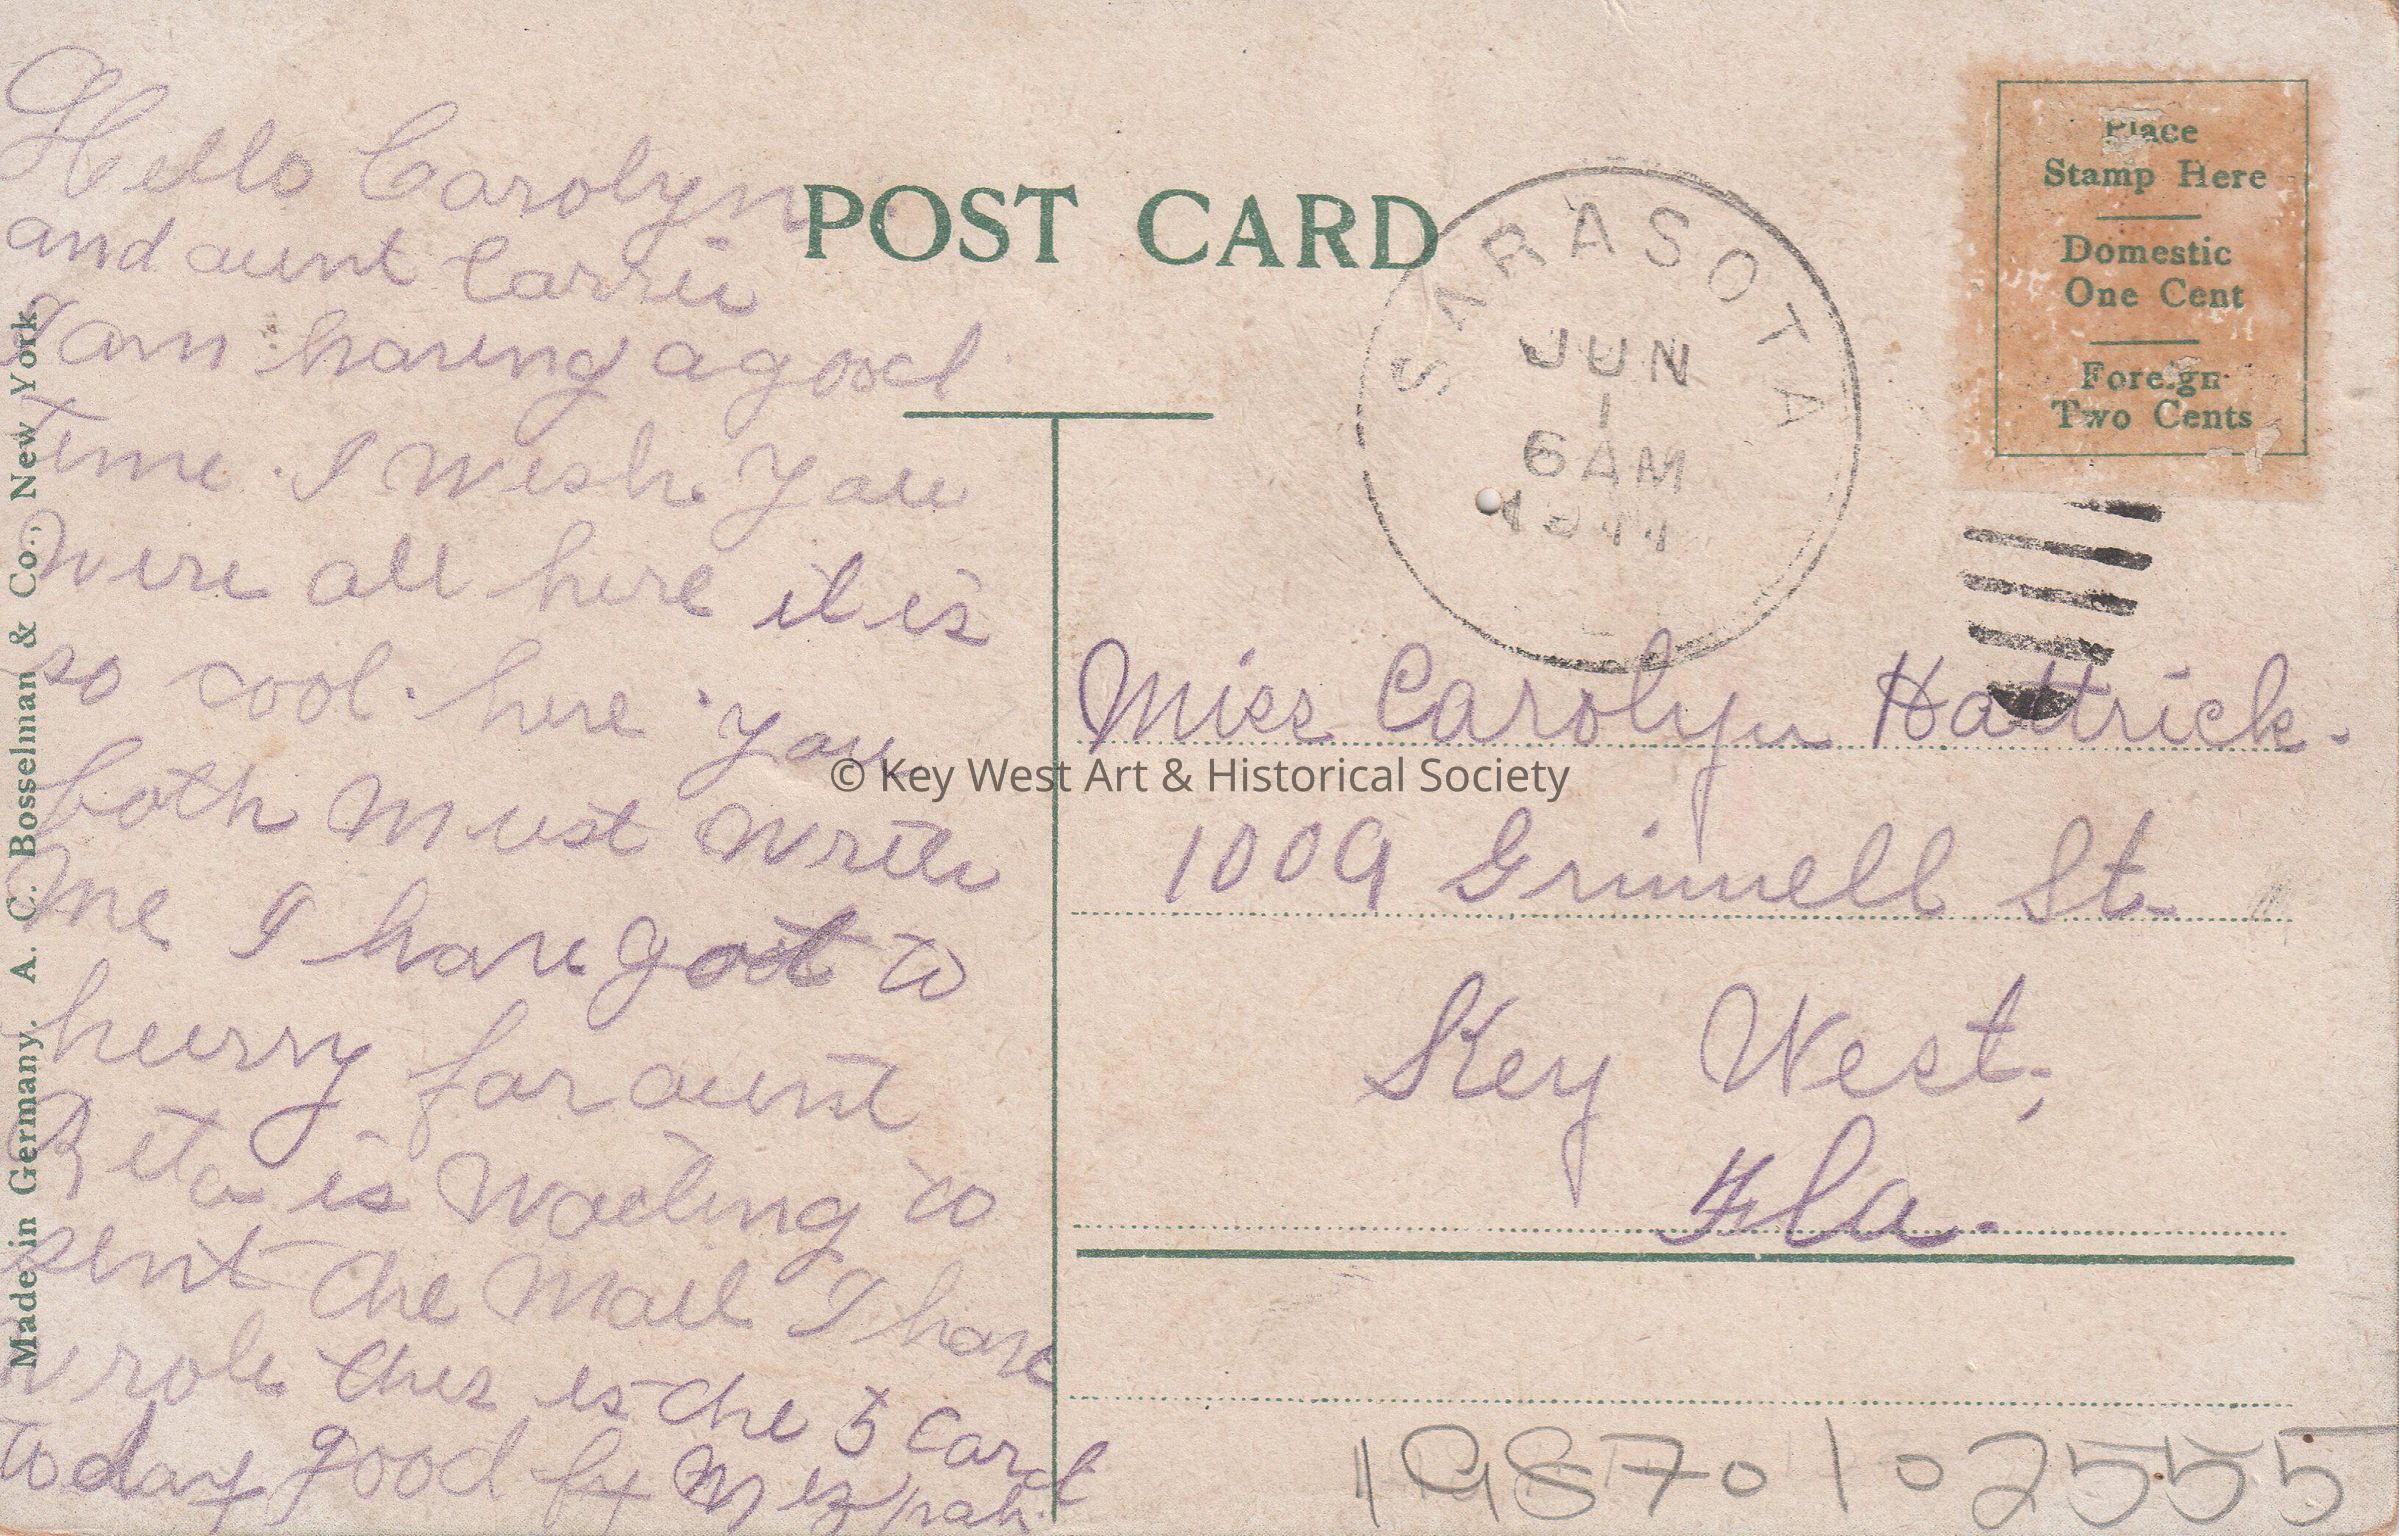 Hello Carolyn
and aunt Carrie
I am having a good
time. I wish you
were all here it is
so cool. here. you
both must write
me I have got to
hurry for aunt
Reta is waiting to
sent the mail I have
wrote this is the 5 card
today good by Mizpah.
POST CARD
SARASOTA
JUN
1
6 AM
1911
Place
Stamp Here
Domestic
One Cent
Foreign
Two Cents
Miss Carolyn Hattrick.
1009 Grinnell St.
Key West,
Fla.
Made in Germany. A. C. Bosselman & Co., New York
© Key West Art & Historical Society
19870102555